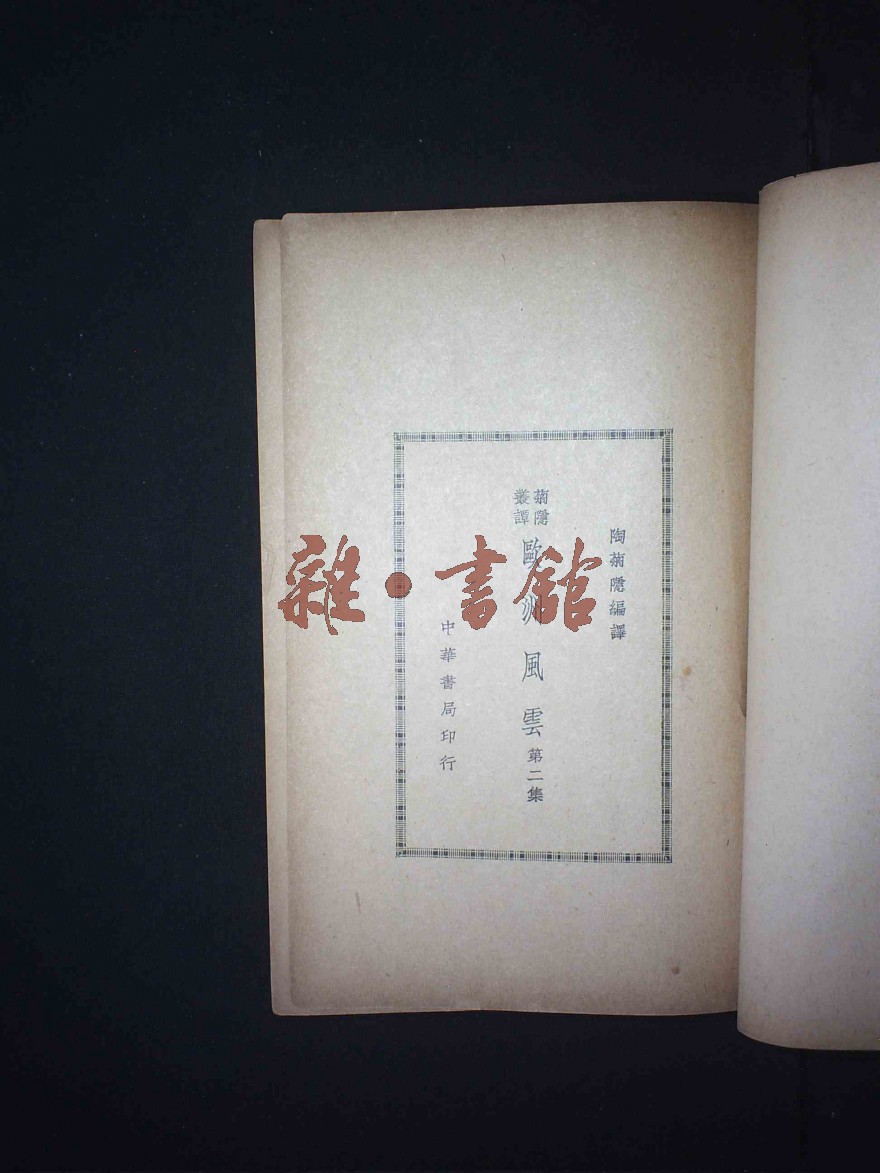 陶菊隱編譯
菊隱
叢譚
歐洲風雲 第二集
中華書局印行
雜·書館